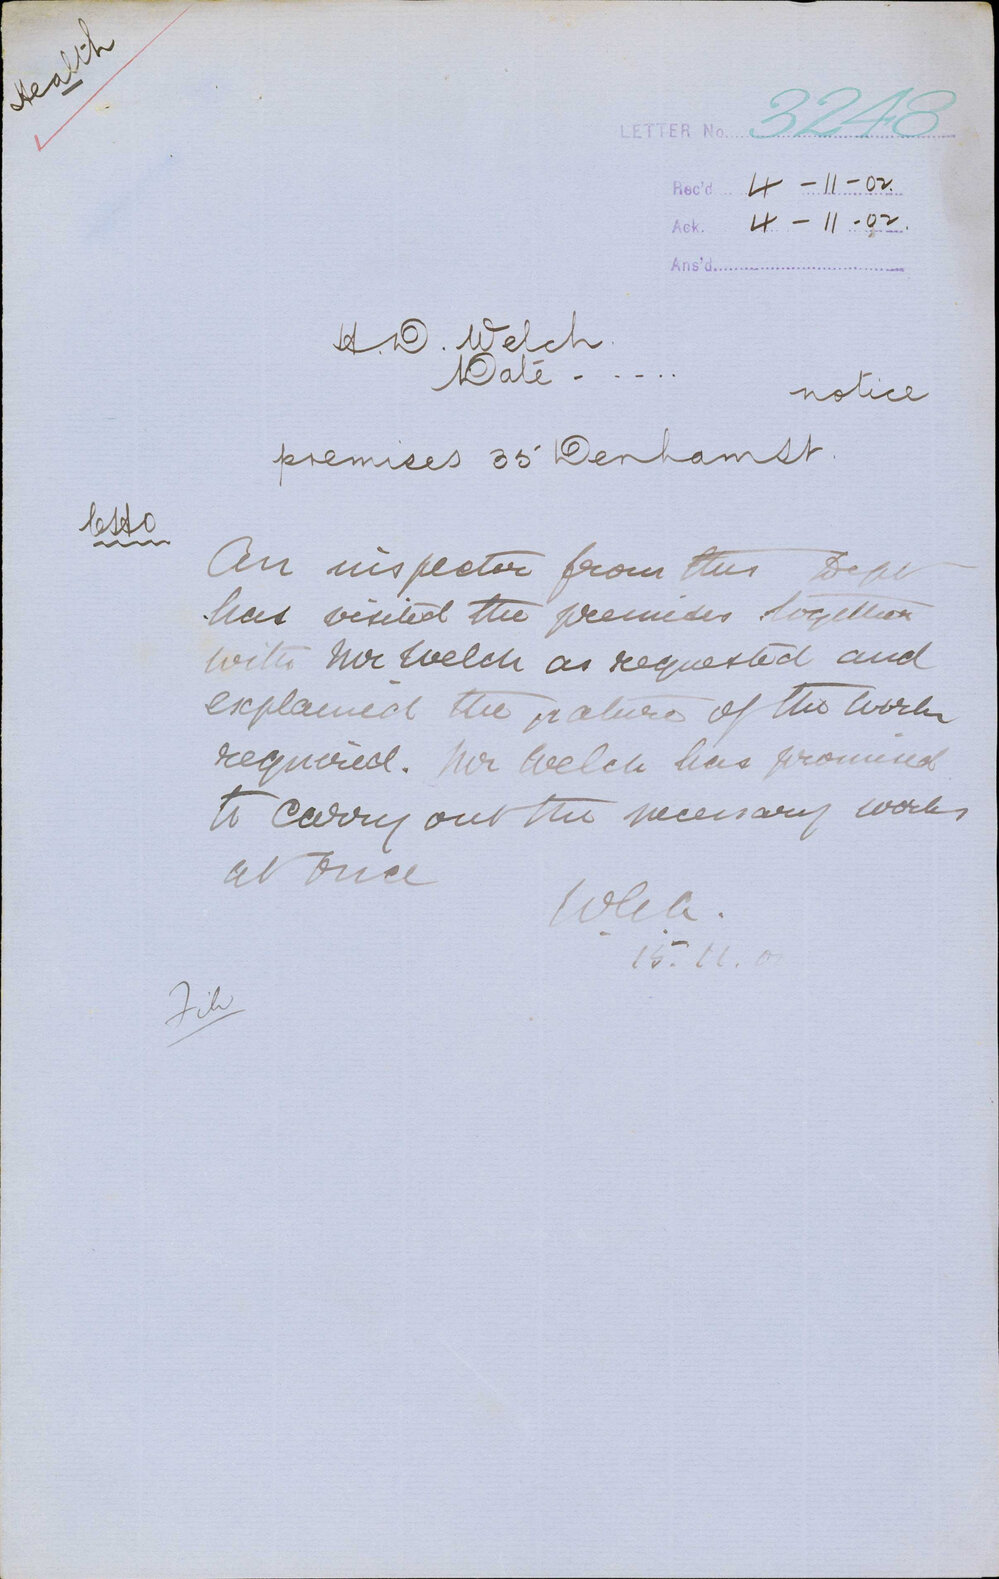 Health
LETTER No. 3248
Rec'd 4-11-02.
Ack. 4-11-02.
Ans'd
H.D. Welch.
Date - - - - - -
notice
premises 35 Denham St.
CHO
An inspector from this Dept
has visited the premises together
with Mr Welch as requested and
explained the nature of the work
required. Mr Welch has promised
to carry out the necessary works
at once
15.11.0
File